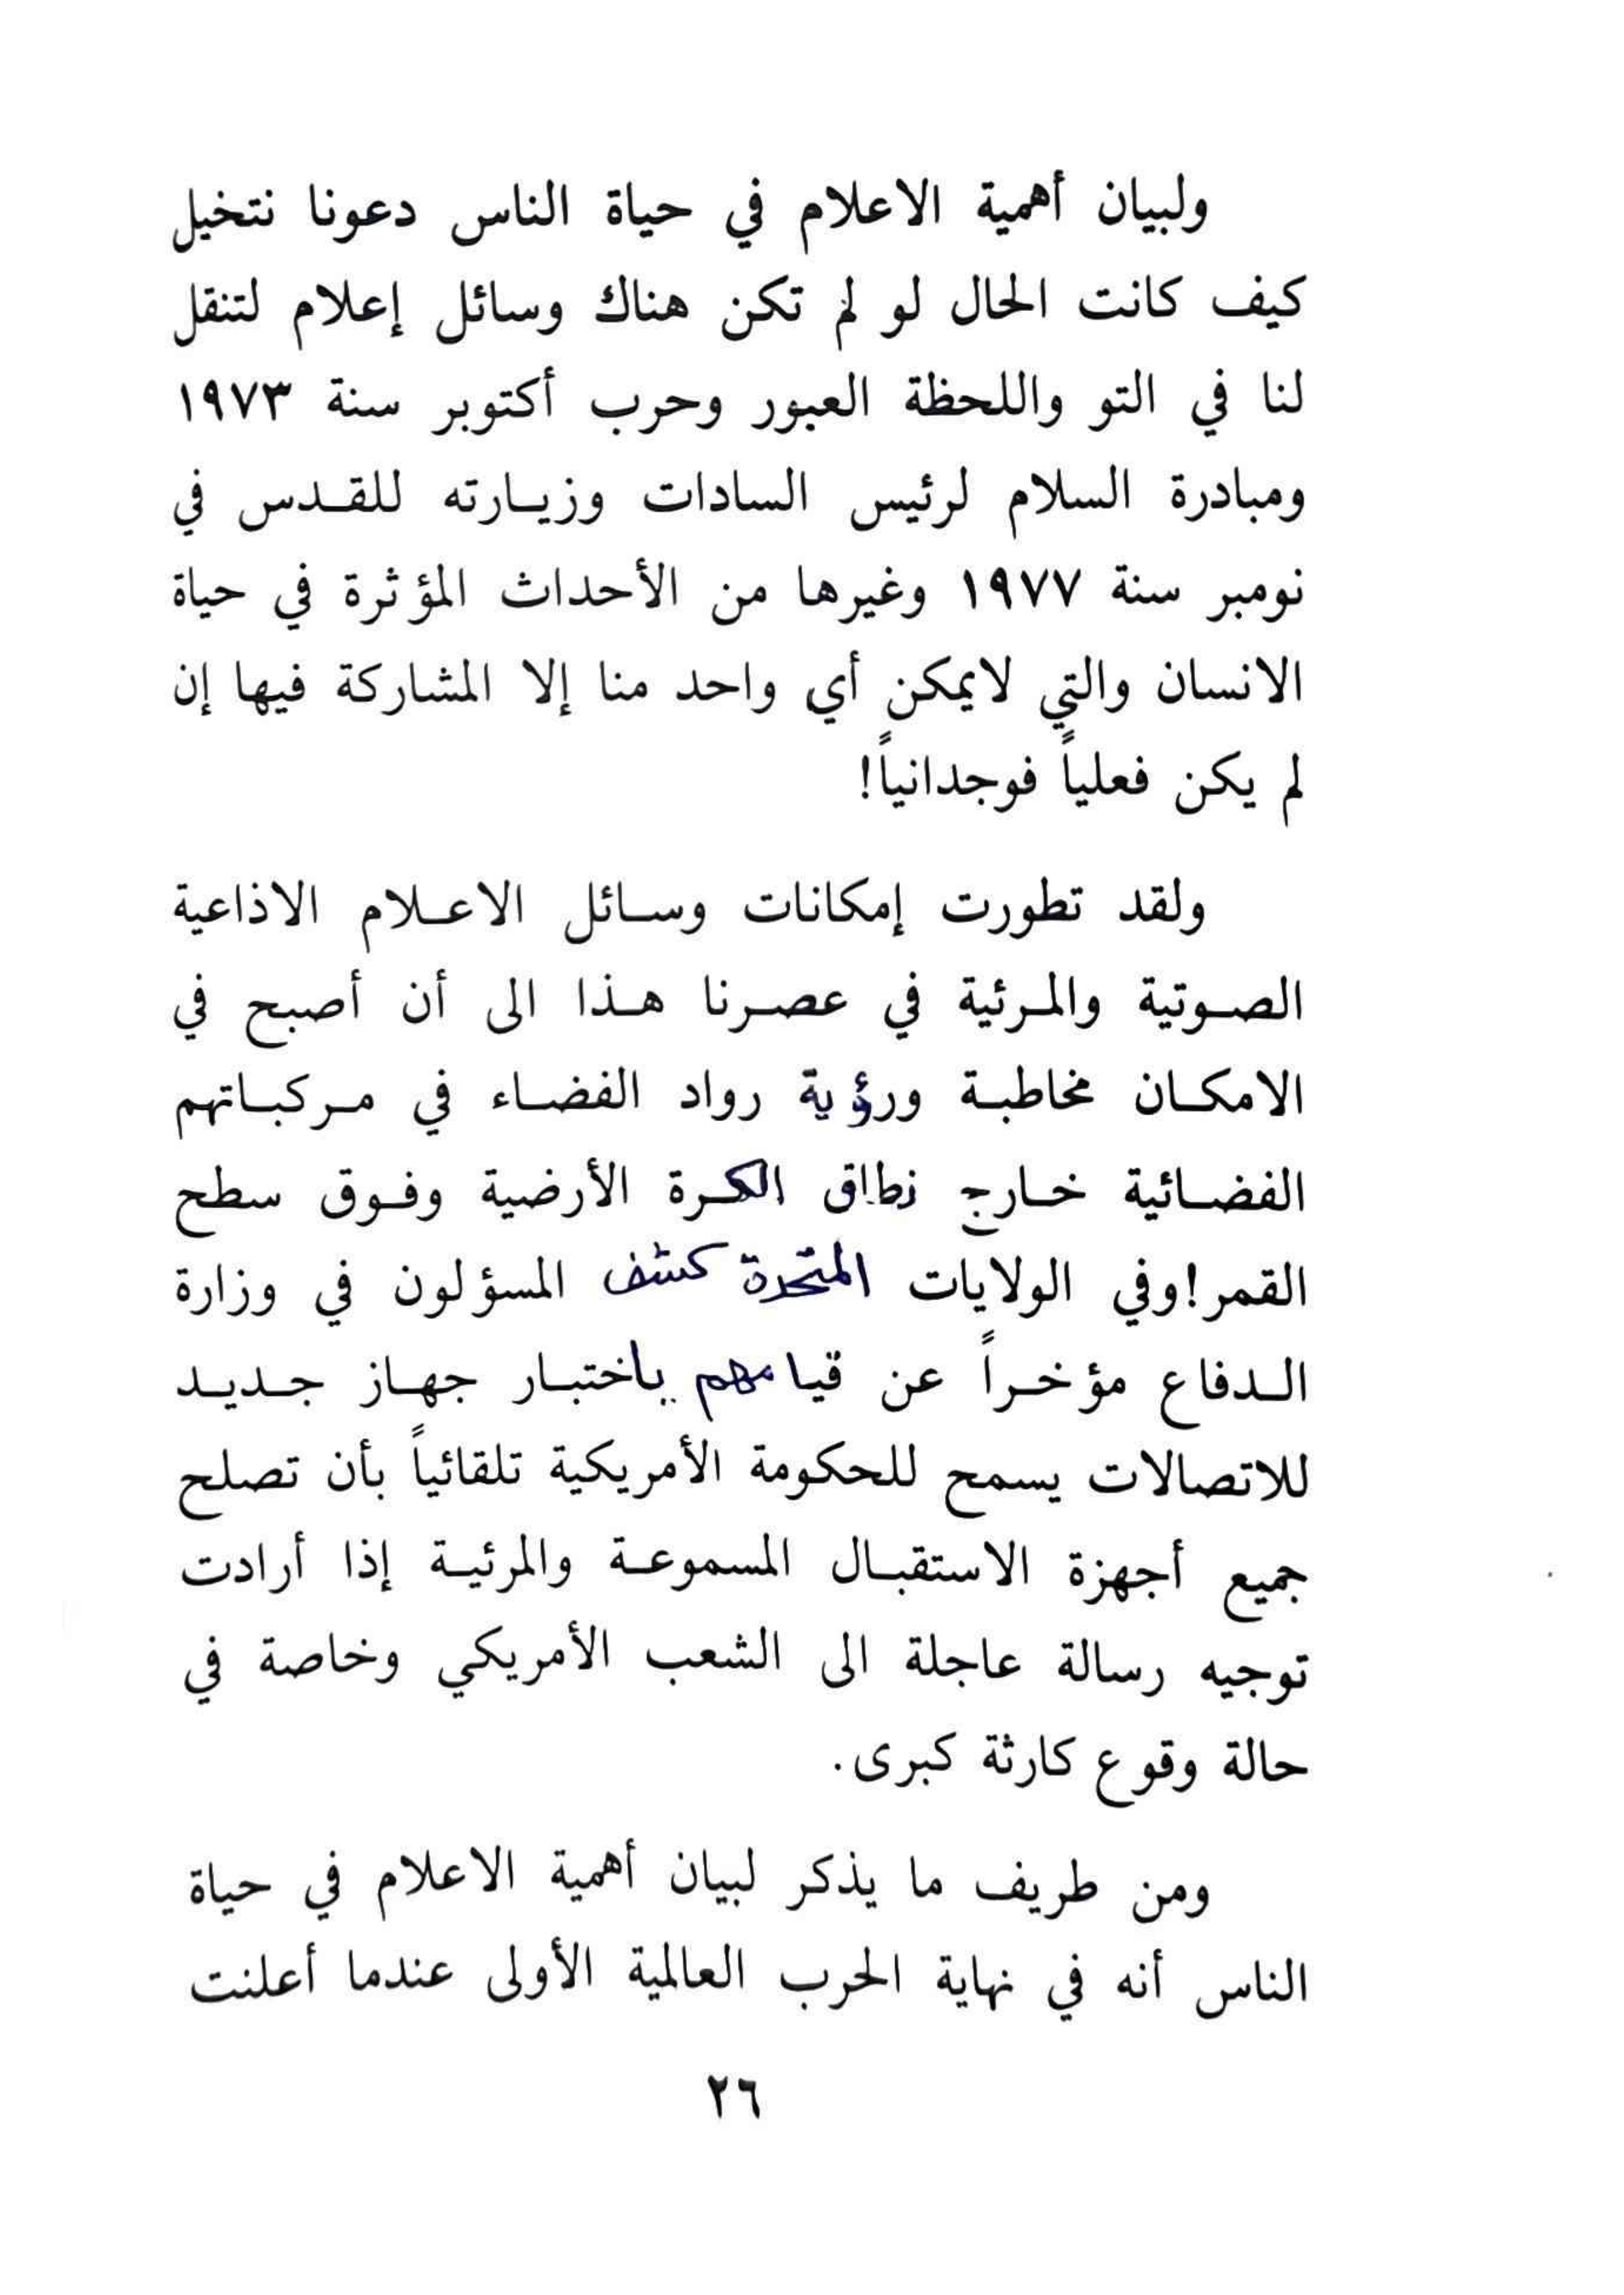 ولبيان أهمية الاعلام في حياة الناس دعونا نتخيل
كيف كانت الحال لو لم تكن هناك وسائل إعلام لتنقل
لنا في التو واللحظة العبور وحرب أكتوبر سنة ١٩٧٣
ومبادرة السلام لرئيس السادات وزيارته للقدس في
نومبر سنة ١٩٧٧ وغيرها من الأحداث المؤثرة في حياة
الانسان والتي لايمكن أي واحد منا إلا المشاركة فيها إن
لم يكن فعلياً فوجدانياً!
ولقد تطورت إمكانات وسائل الاعلام الاذاعية
الصوتية والمرئية في عصرنا هذا الى أن أصبح في
الامكان مخاطبة ورؤية رواد الفضاء في مركباتهم
الفضائية خارج نطاق الكرة الأرضية وفوق سطح
القمر! وفي الولايات المتحدة كشف المسؤلون في وزارة
الدفاع مؤخراً عن قيامهم باختبار جهاز جديد
للاتصالات يسمح للحكومة الأمريكية تلقائياً بأن تصلح
جميع أجهزة الاستقبال المسموعة والمرئية إذا أرادت
توجيه رسالة عاجلة الى الشعب الأمريكي وخاصة في
حالة وقوع كارثة كبرى.
ومن طريف ما يذكر لبيان أهمية الاعلام في حياة
الناس أنه في نهاية الحرب العالمية الأولى عندما أعلنت
٢٦